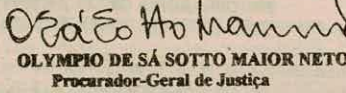 OLYMPIO DE SÁ SOTTO MAIOR NETO
Procurador-Geral de Justiça